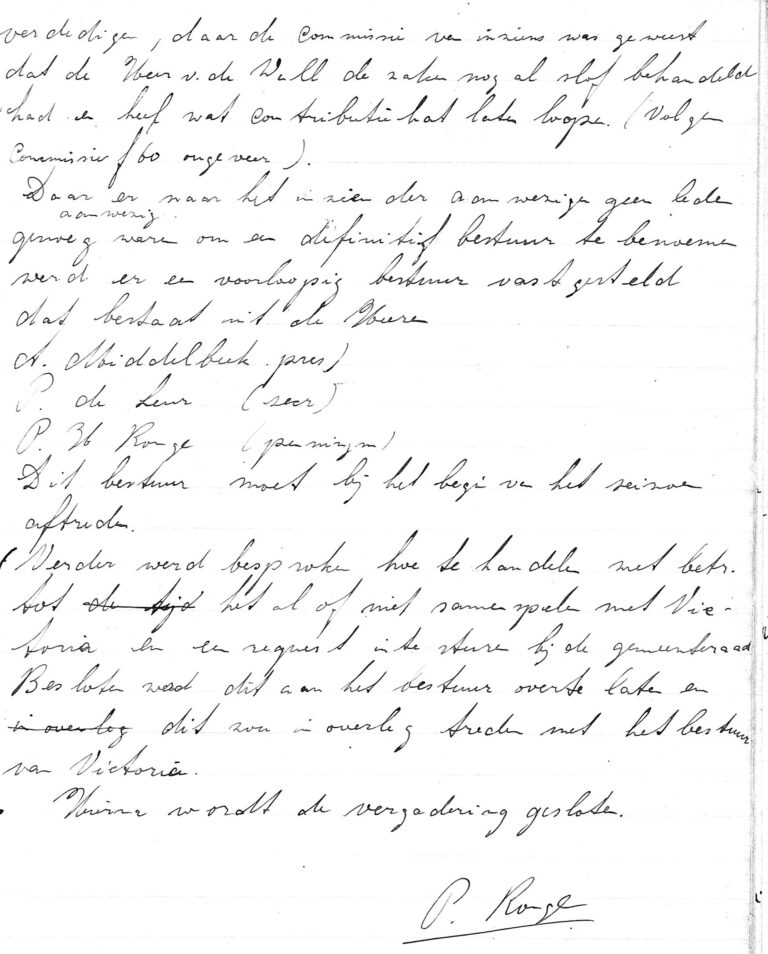 verdedigen, daar de commissie van inziens was geweest
dat de Heer v. de Wall de zaken nog al slof behandeld
had en heef wat contributie hat laten loopen. (Volgens
Commissie f 60 ongeveer).
Daar er naar het inzien der aanwezigen geen leden
aanwezig
genoeg waren om een definitief bestuur te benoemen
werd er een voorloopig bestuur vastgesteld
dat bestaat uit de Heeren
A. Middelbeek pres)
P. de Leur (secr)
P. H Ronge (penningm)
Dit bestuur moet bij het begin van het seizoen
aftreden.
Verder werd besproken hoe te handelen met betr.
tot de tijd het al of niet samenspelen met Vic-
toria en een request in te sturen bij de gemeenteraad
Besloten werd dit aan het bestuur over te laten en
in overleg dit zou in overleg treden met het bestuur
van Victoria.
Hierna wordt de vergadering gesloten.
P. Ronge